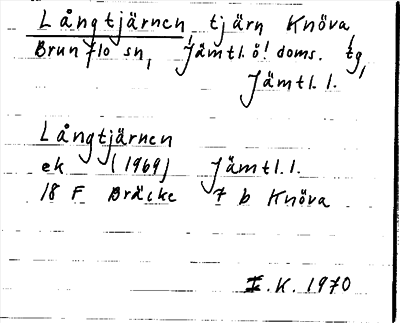 Långtjärnen, tjärn Knöva,
Brunflo sn, Jämtl. ö! doms. tg,
Jämtl. l.
Långtjärnen
ek (1969) Jämtl. l.
18 F Bräcke 7 b Knöva
I.K. 1970